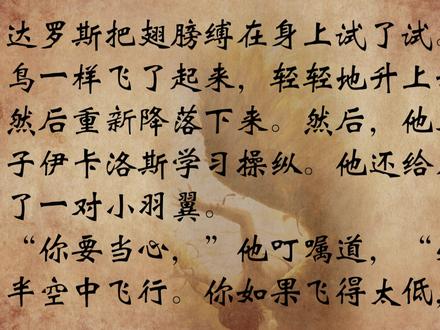 达罗斯把翅膀缚在身上试了试。
鸟一样飞了起来，轻轻地升上
然后重新降落下来。然后，他
子伊卡洛斯学习操纵。他还给
了一对小羽翼。
“你要当心，”他叮嘱道，“
半空中飞行。你如果飞得太低，